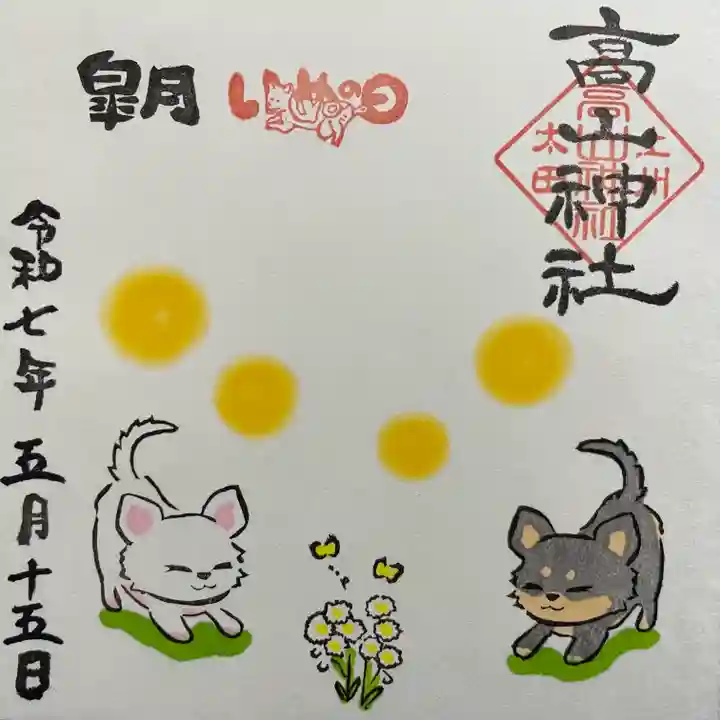 高山神社
上州
高山神社
太田
皐月
いぬの日
令和七年 五月十五日